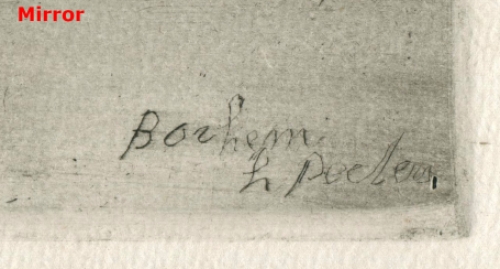 Mirror
Borhem
h Poelers